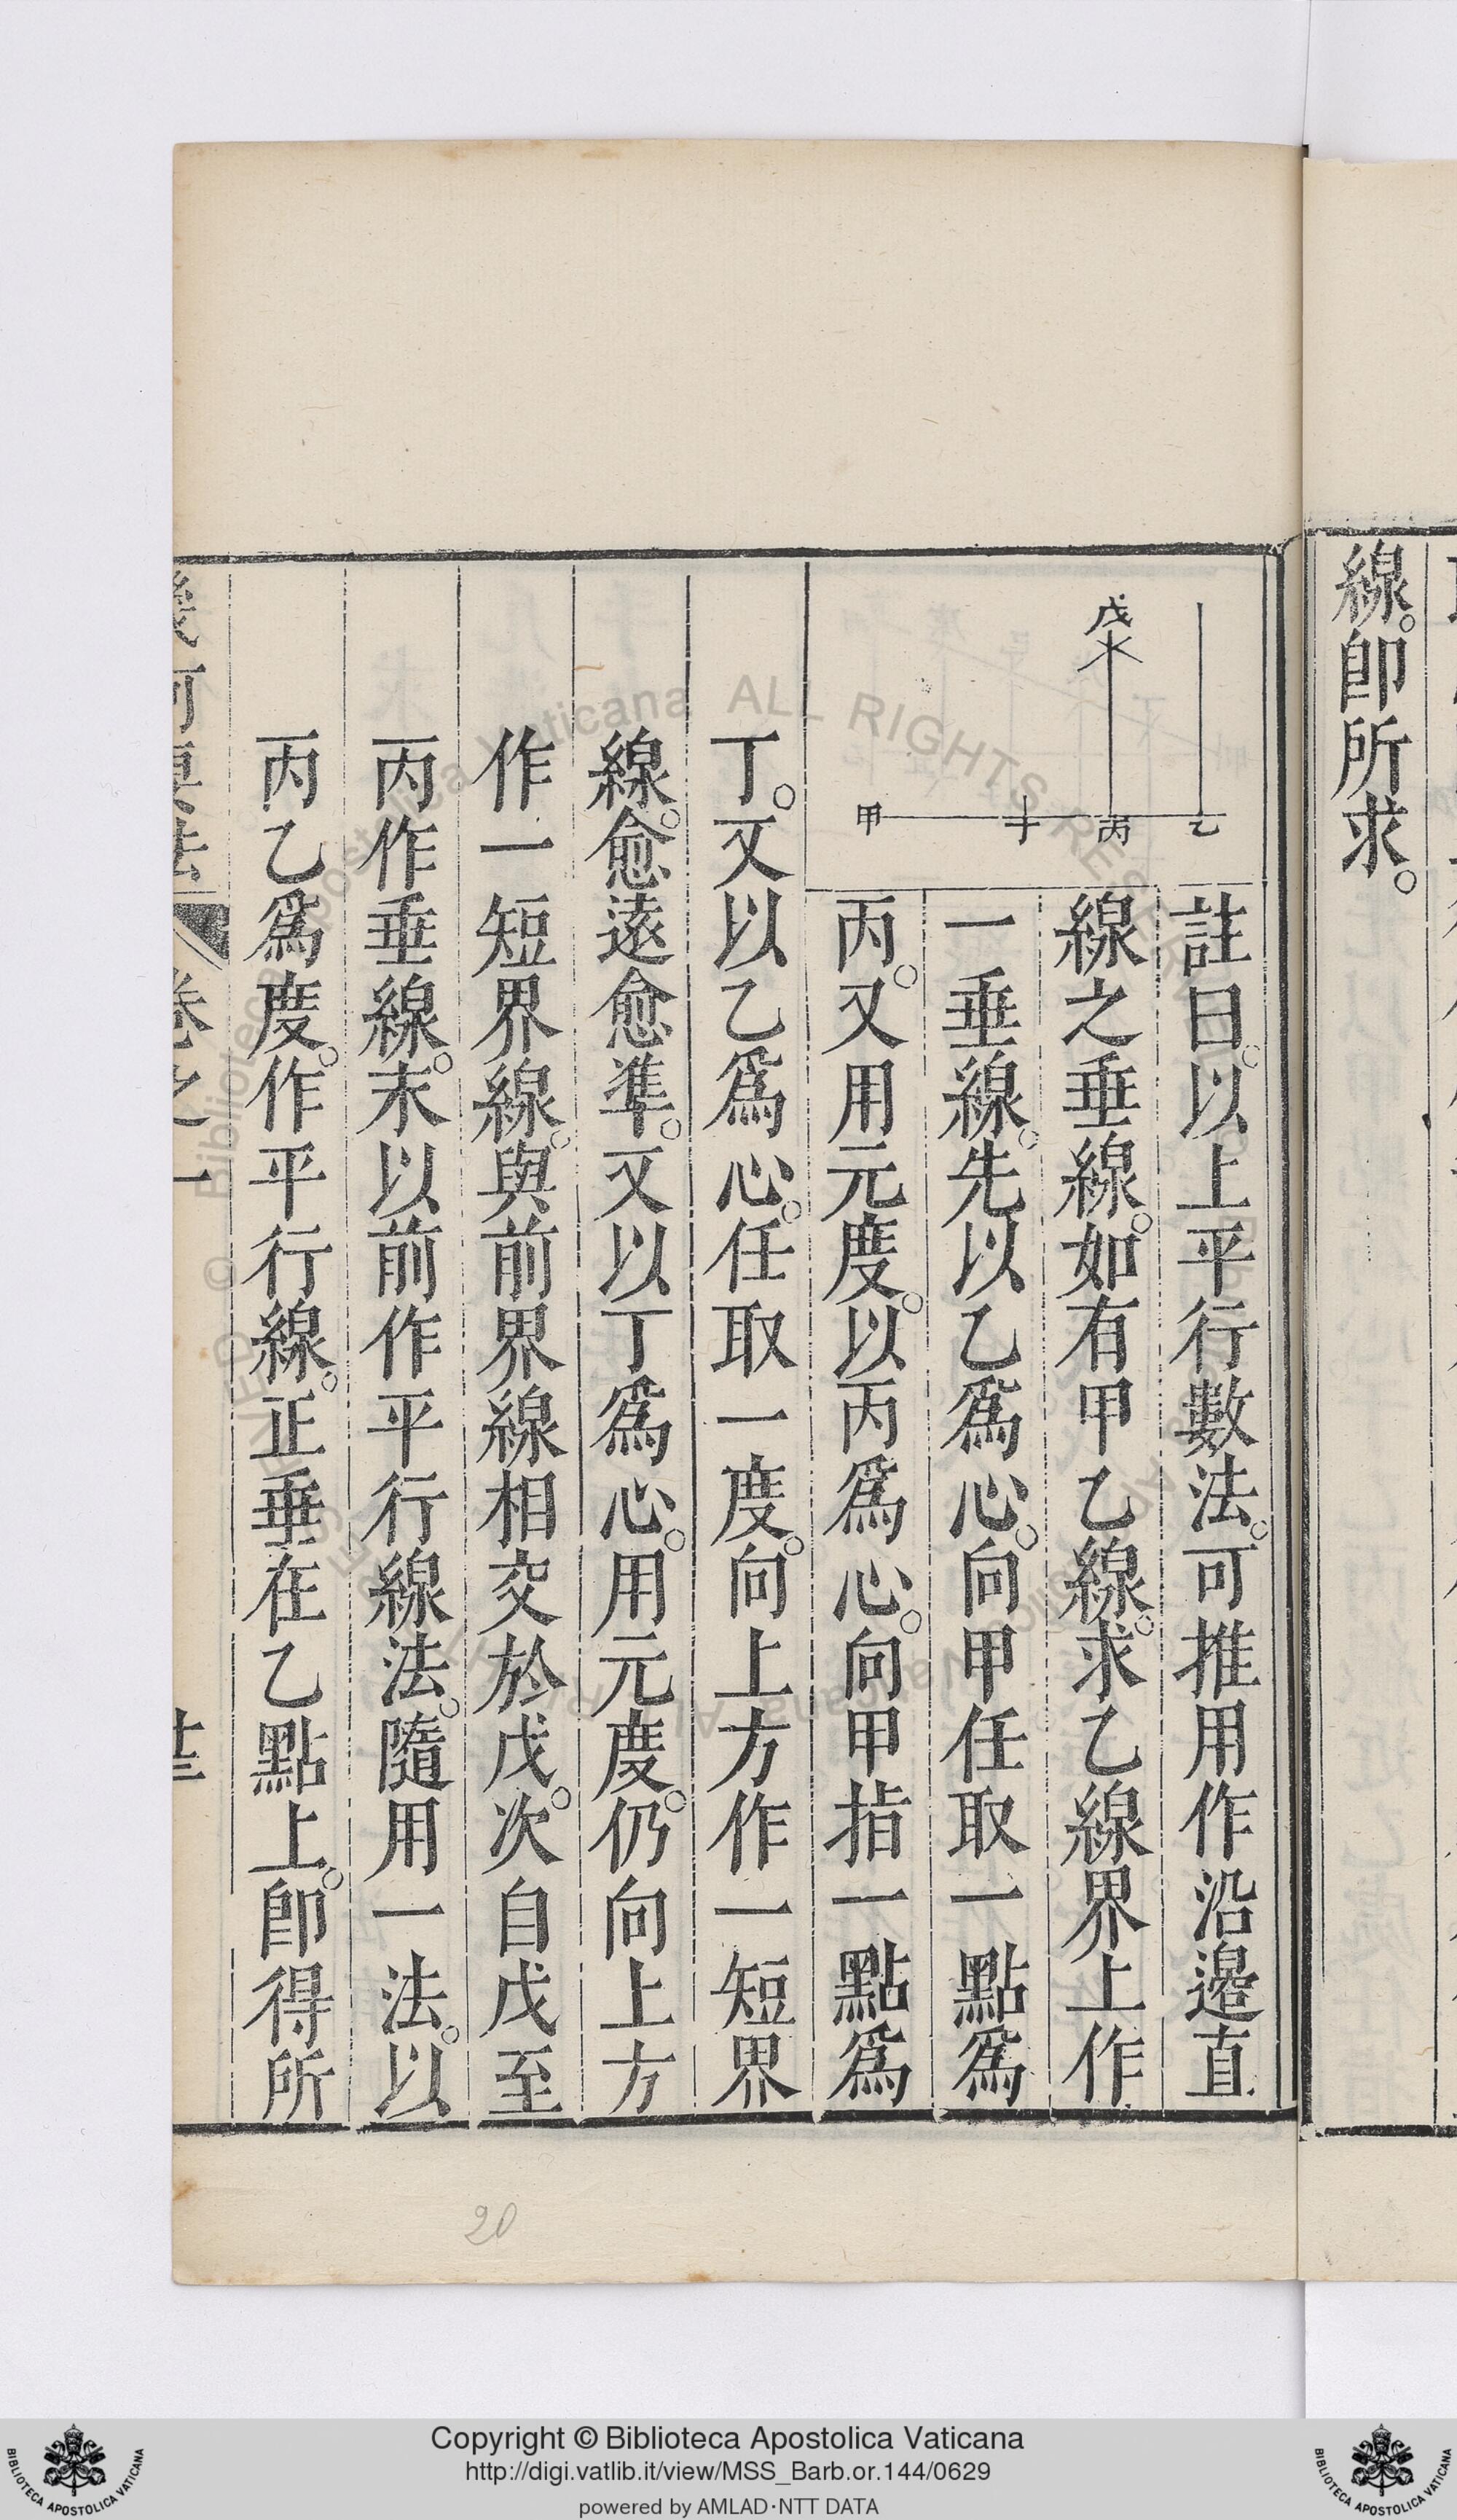 線。卽所求。
註曰。以上平行數法。可推用作沿邊直
線之垂線。如有甲乙線。求乙線界上作
一垂線。先以乙爲心。向甲任取一點爲
丙。又用元度。以丙爲心。向甲指一點爲
丁。又以乙爲心。任取一度。向上方作一短界
線。愈遠愈準。又以丁爲心。用元度。仍向上方
作一短界線。與前界線相交於戊。次自戊至
丙作垂線。末以前作平行線法。隨用一法。以
丙乙爲度。作平行線。正垂在乙點上。卽得所
幾何要法 卷之一 廿三
戊
乙
丙
丁
甲
20
© Biblioteca Apostolica Vaticana ALL RIGHTS RESERVED
Copyright © Biblioteca Apostolica Vaticana
http://digi.vatlib.it/view/MSS_Barb.or.144/0629
powered by AMLAD·NTT DATA
BIBLIOTECA APOSTOLICA VATICANA
BIBLIOTECA APOSTOLICA VATICANA